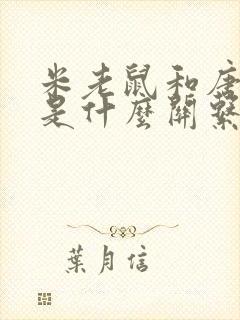 米老鼠和唐
是什麼關繫
葉月信